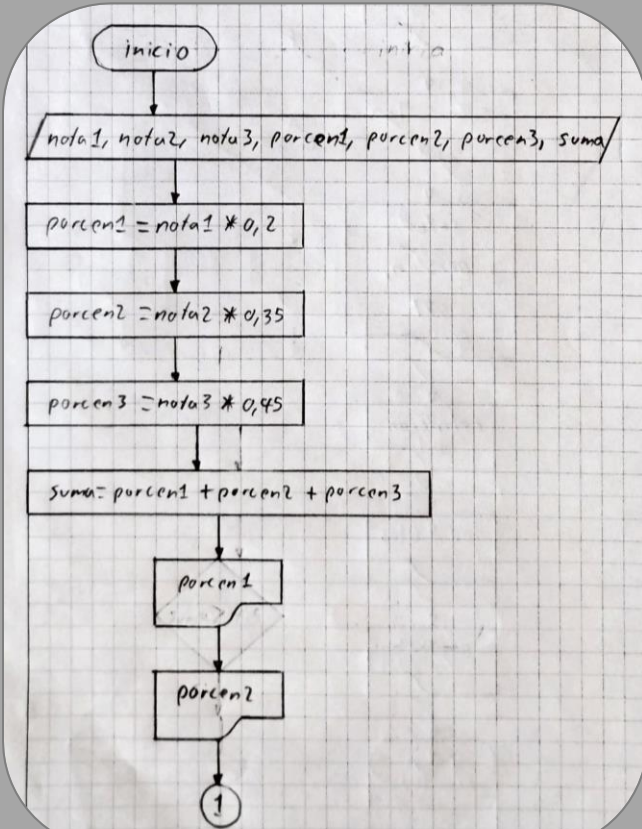 inicio
nota1, nota2, nota3, porcen1, porcen2, porcen3, suma
porcen1 = nota1 * 0,2
porcen2 = nota2 * 0,35
porcen3 = nota3 * 0,45
suma= porcen1 + porcen2 + porcen3
porcen1
porcen2
1